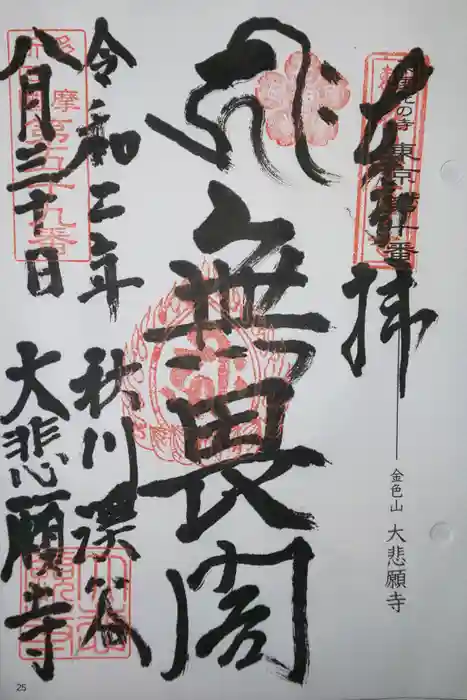 奉拝
花の寺 東京第十番
金色山 大悲願寺
無畏閣
令和二年
八月三十日
多摩
第五十九番
秋川渓谷
大悲願寺
25